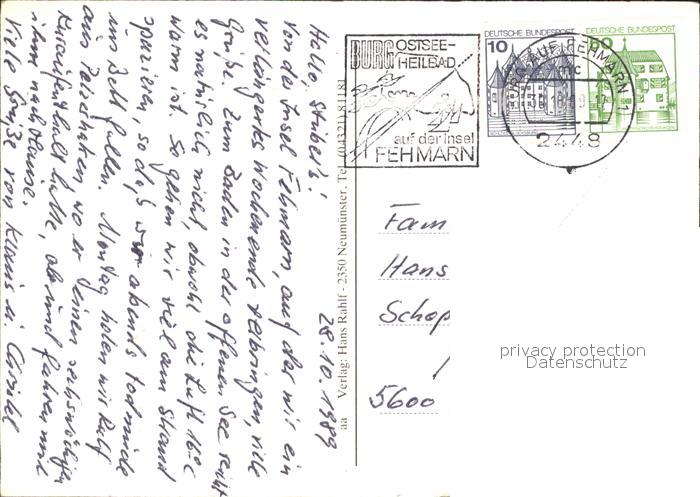 28.10.1989
Hallo Stübels!
Von der Insel Fehmarn, auf der wir ein
verlängertes Wochenende verbringen, viele
Grüße. Zum Baden in der offenen See reicht
es natürlich nicht, obwohl die Luft 16°C
warm ist. So gehen wir viel am Strand
spazieren, so daß wir abends todmüde
ins Bett fallen. Montag holen wir Ralf
aus ab, wo er einen sechswöchigen
hatte, ab und fahren mit
ihm nach Hause.
Viele Grüße von Klaus u.
aa Verlag: Hans Rahlf - 2350 Neumünster, Tel. (04321) 81181
BURG OSTSEE-
HEILBAD
auf der Insel
FEHMARN
DEUTSCHE BUNDESPOST
10
DEUTSCHE BUNDESPOST
BURG AUF FEHMARN
mc
2448
Fam
Hans
Schop
5600
privacy protection
Datenschutz